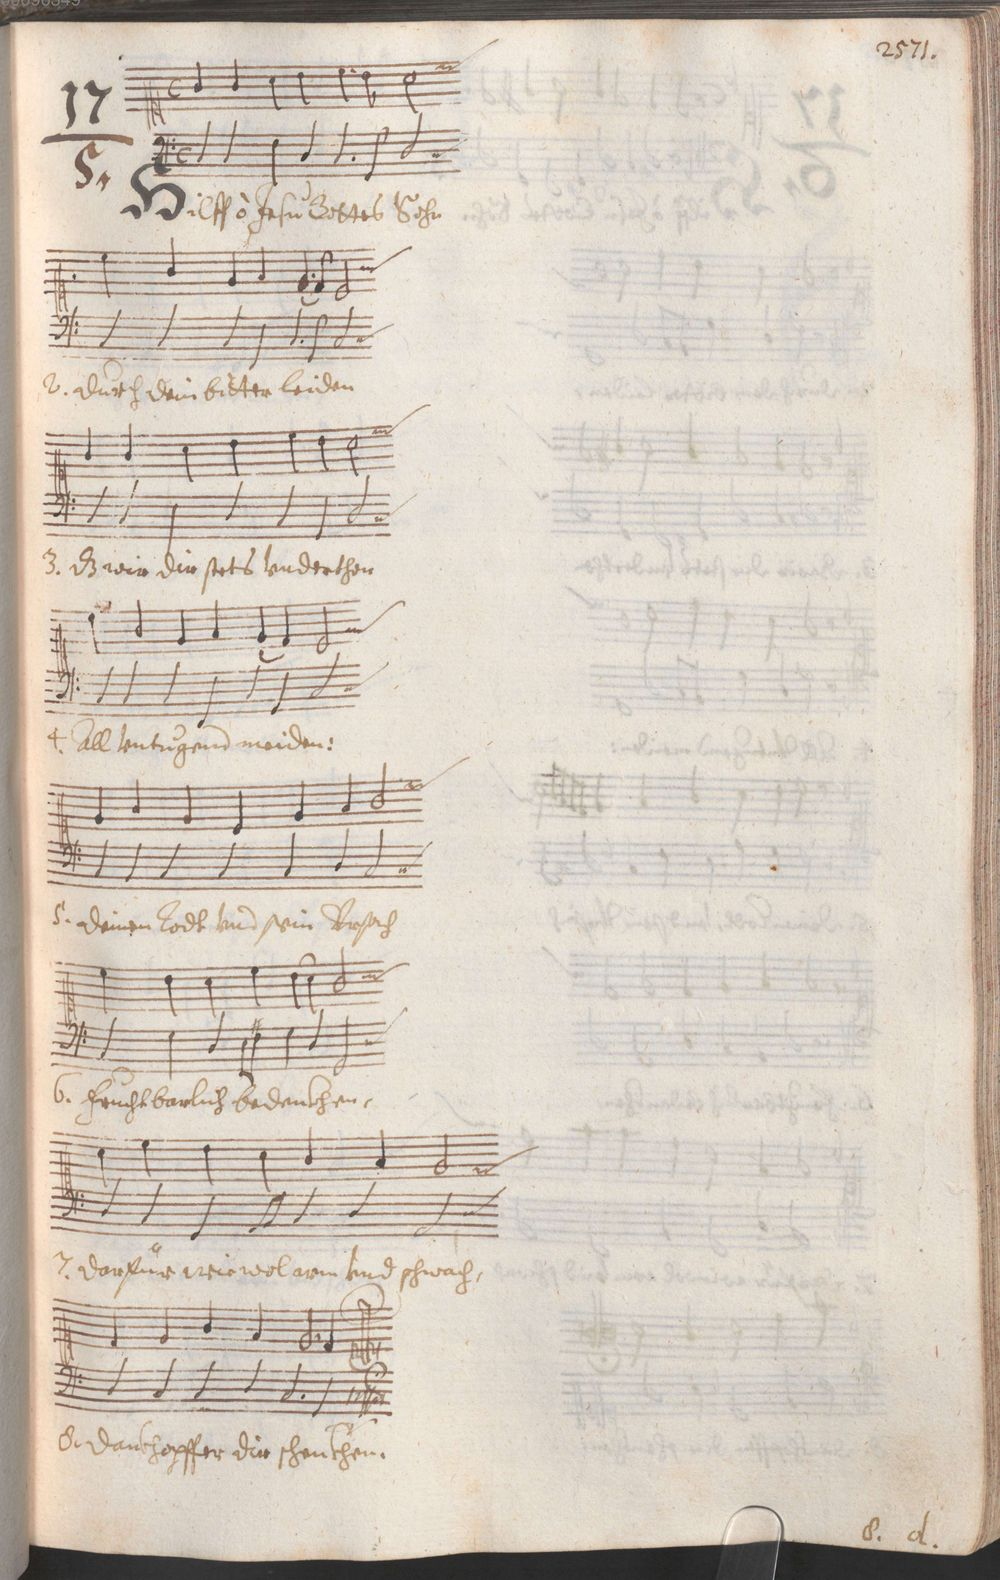 2571.
17
5.
Hilff ô Jesu Gottes Sohn
2. durch dein bitter leiden
3. Dz wir dir stets underthon
4. All untugend meiden:
5. deinen Todt und sein Ursach
6. fruchtbarlich bedencken,
7. darfür wiewol arm und schwach,
8. danckopffer dir schencken.
8. d.